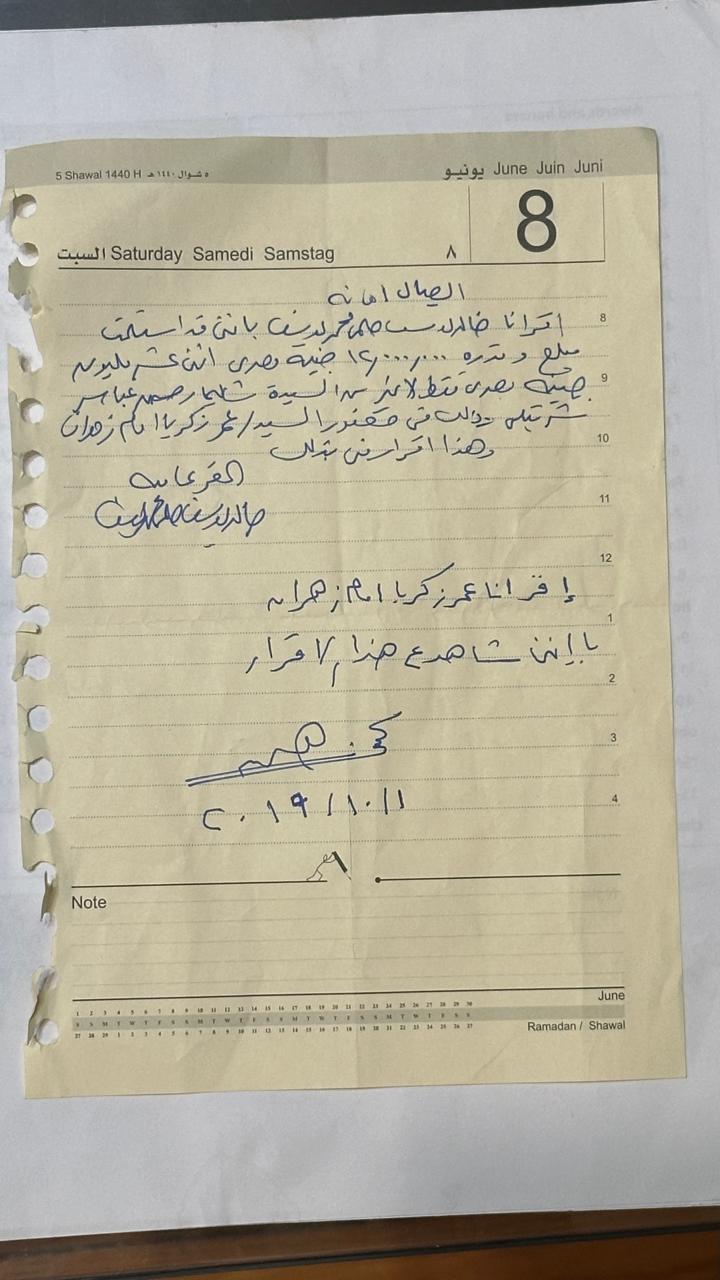 5 Shawal 1440 H ٥ شوال ١٤٤٠ هـ
يونيو June Juin Juni
8
السبت Saturday Samedi Samstag ٨
ايصال امانه
8
اقر انا خالد بانني قد استلمت
مبلغ و قدره ١٢,٠٠٠,٠٠٠ جنية مصرى اثنى عشر مليون
9
جنية مصرى فقط لاغير من السيدة عباس
وذلك فى حضور السيد / عمر زكريا امام زهران
10
وهذا اقرار منى بذلك
المقر بما فيه
11
خالد
12
إقر انا عمر زكريا امام زهران
1
باإننى شاهد ع هذا الاقرار
2
3
٢٠١٩/١٠/١
4
Note
June
1 2 3 4 5 6 7 8 9 10 11 12 13 14 15 16 17 18 19 20 21 22 23 24 25 26 27 28 29 30
S S M T W T F S S M T W T F S S M T W T F S S M T W T F S S
27 28 29 1 2 3 4 5 6 7 8 9 10 11 12 13 14 15 16 17 18 19 20 21 22 23 24 25 26 27
Ramadan / Shawal